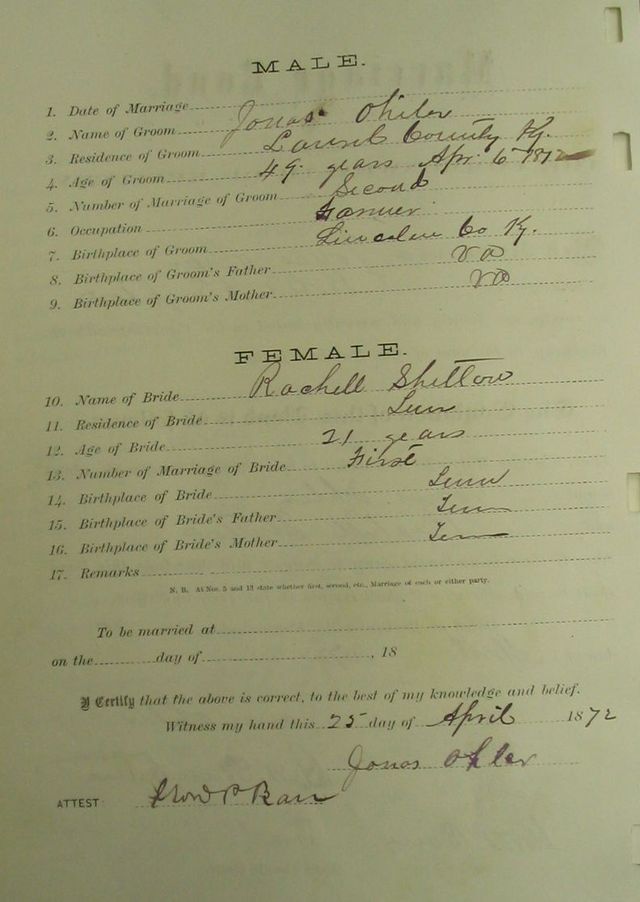 MALE.
1. Date of Marriage
2. Name of Groom Jonas Ohler
3. Residence of Groom Laurel County Ky.
4. Age of Groom 49 years Apr. 6 1872
5. Number of Marriage of Groom Second
6. Occupation Farmer
7. Birthplace of Groom Lincoln Co Ky.
8. Birthplace of Groom's Father Va
9. Birthplace of Groom's Mother Va
FEMALE.
10. Name of Bride Rachell Shelton
11. Residence of Bride Tenn
12. Age of Bride 21 years
13. Number of Marriage of Bride First
14. Birthplace of Bride Tenn
15. Birthplace of Bride's Father Tenn
16. Birthplace of Bride's Mother Tenn
17. Remarks
N. B. At Nos. 5 and 13 state whether first, second, etc., Marriage of each or either party.
To be married at
on the day of , 18
I Certify that the above is correct, to the best of my knowledge and belief.
Witness my hand this 25 day of April 1872
Jonas Ohler
ATTEST